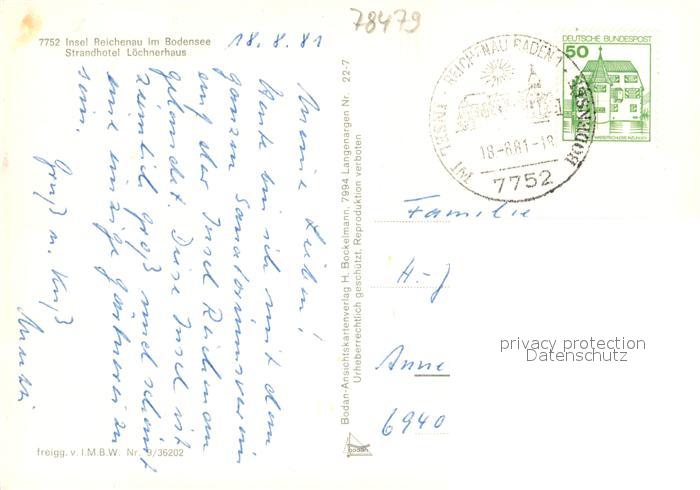 78479
7752 Insel Reichenau im Bodensee
Strandhotel Löchnerhaus
18.8.81
Meine Lieben!
Heute bin ich mit dem
ganzen Sanatoriumsverein
auf der Insel Reichenau
gelandet. Diese Insel ist
ziemlich groß und scheint
eine einzige Gärtnerei zu
sein.
Gruß u. Kuß
Mutti
freigg. v. I.M.B.W. Nr. 9/36202
Bodan-Ansichtskartenverlag H. Bockelmann, 7994 Langenargen Nr. 22-7
Urheberrechtlich geschützt, Reproduktion verboten
bodan
INSEL REICHENAU BADEN 1
IM BODENSEE
18-8.81-18
7752
DEUTSCHE BUNDESPOST
50
WASSERSCHLOSS INZLINGEN
Familie
H-J
Anne
6940
privacy protection
Datenschutz